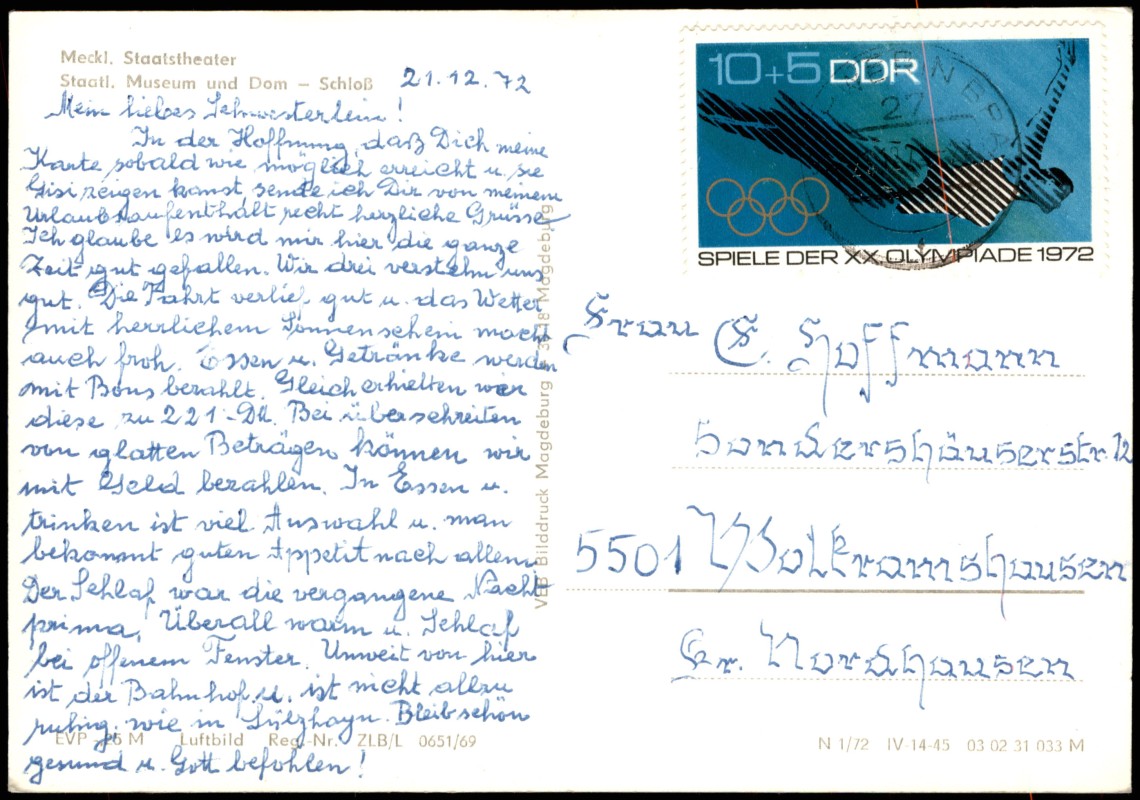 Meckl. Staatstheater
Staatl. Museum und Dom – Schloß
21.12.72
Mein liebes Schwesterlein!
In der Hoffnung, daß Dich meine
Karte sobald wie möglich erreicht u. sie
Gisi zeigen kannst, sende ich Dir von meinem
Urlaubsaufenthalt recht herzliche Grüsse
Ich glaube es wird mir hier die ganze
Zeit gut gefallen. Wir drei verstehn uns
gut. Die Fahrt verlief gut u. das Wetter
mit herrlichem Sonnenschein macht
auch froh. Essen u. Getränke werden
mit Bons bezahlt. Gleich erhielten wir
diese zu 221.- DM. Bei überschreiten
von glatten Beträgen können wir
mit Geld bezahlen. In Essen u.
trinken ist viel Auswahl u. man
bekommt guten Appetit nach allem
Der Schlaf war die vergangene Nacht
prima. Überall warm u. Schlaf
bei offenem Fenster. Unweit von hier
ist der Bahnhof u. ist nicht allzu
ruhig, wie in Sülzhayn. Bleib schön
gesund u. Gott befohlen!
EVP -,25 M Luftbild Reg.-Nr. ZLB/L 0651/69
VEB Bilddruck Magdeburg 3018 Magdeburg
10+5 DDR
27
SPIELE DER XX. OLYMPIADE 1972
Frau E. Hoffmann
Sondershäuserstr. 12
5501 Wolkramshausen
Kr. Nordhausen
N 1/72 IV-14-45 03 02 31 033 M